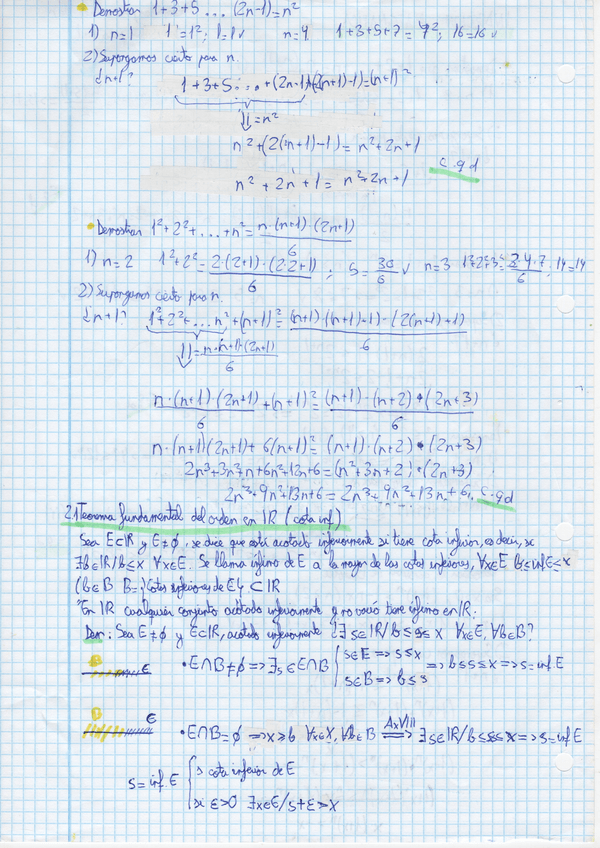 • Demostrar 1+3+5...(2n-1)=n²
1) n=1 1=1²; 1=1√ n=4 1+3+5+7=4²; 16=16√
2) Supongamos cierto para n.
¿n+1? 1+3+5...+(2n-1)+(2(n+1)-1)=(n+1)²
⇓=n²
n²+(2(n+1)-1)=n²+2n+1
n²+2n+1=n²+2n+1 c.q.d
• Demostrar 1²+2²+...+n²=n·(n+1)·(2n+1)/6
1) n=2 1²+2²=2·(2+1)·(2·2+1)/6; 5=30/6 √ n=3 1²+2²+3²=3·4·7/6; 14=14
2) Supongamos cierto para n.
¿n+1? 1²+2²+...n²+(n+1)²=(n+1)·((n+1)+1)·(2(n+1)+1)/6
⇓=n·(n+1)·(2n+1)/6
n·(n+1)·(2n+1)/6+(n+1)²=(n+1)·(n+2)·(2n+3)/6
n·(n+1)(2n+1)+6(n+1)²=(n+1)·(n+2)·(2n+3)
2n³+3n²+n+6n²+12n+6=(n²+3n+2)·(2n+3)
2n³+9n²+13n+6=2n³+9n²+13n+6, c.q.d
2.1 Teorema fundamental del orden en ℝ (cota inf)
Sea E⊂ℝ y E≠∅, se dice que está acotado inferiormente si tiene cota inferior, es decir, si
∃b∈ℝ/b≤x ∀x∈E. Se llama ínfimo de E a la mayor de las cotas inferiores, ∀x∈E b≤inf E≤x
(b∈B B={Cotas inferiores de E} ⊂ℝ
"En ℝ cualquier conjunto acotado inferiormente y no vacío tiene ínfimo en ℝ.
Dem: Sea E≠∅ y E⊂ℝ, acotado inferiormente ¿∃s∈ℝ/b≤s≤x ∀x∈E, ∀b∈B?
B E • E∩B≠∅ => ∃s∈E∩B { s∈E => s≤x
s∈B => b≤s => b≤s≤x => s=inf E
B E • E∩B=∅ => x≥b ∀x∈X, ∀b∈B AxVIII ⟹ ∃s∈ℝ/b≤s≤x => s=inf E
s=inf E { s cota inferior de E
si ε>0 ∃x∈E/s+ε>x